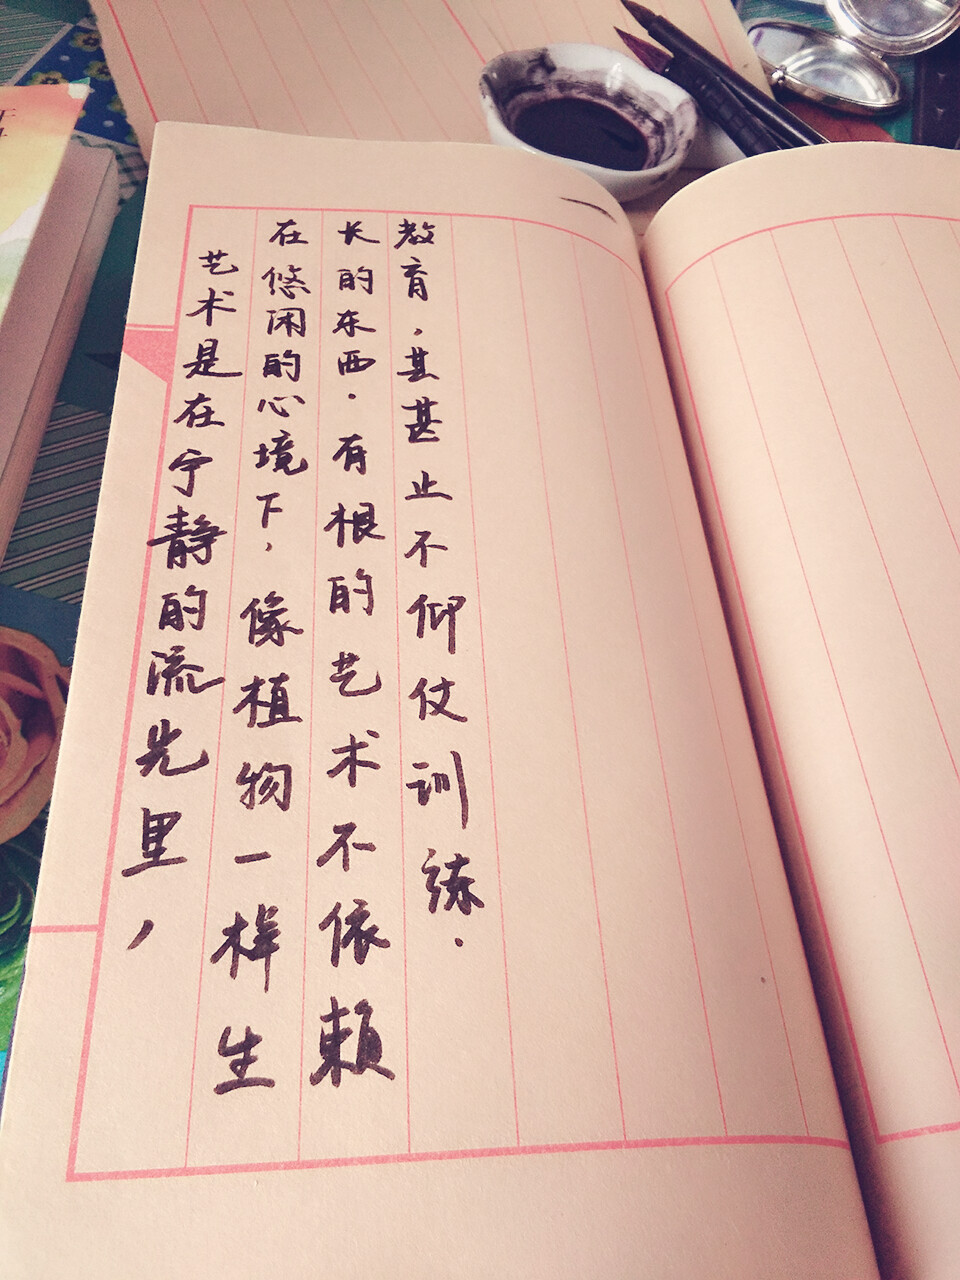 艺术是在宁静的流光里，
在悠闲的心境下，像植物一样生
长的东西。有根的艺术不依赖
教育，甚甚止不仰仗训练。